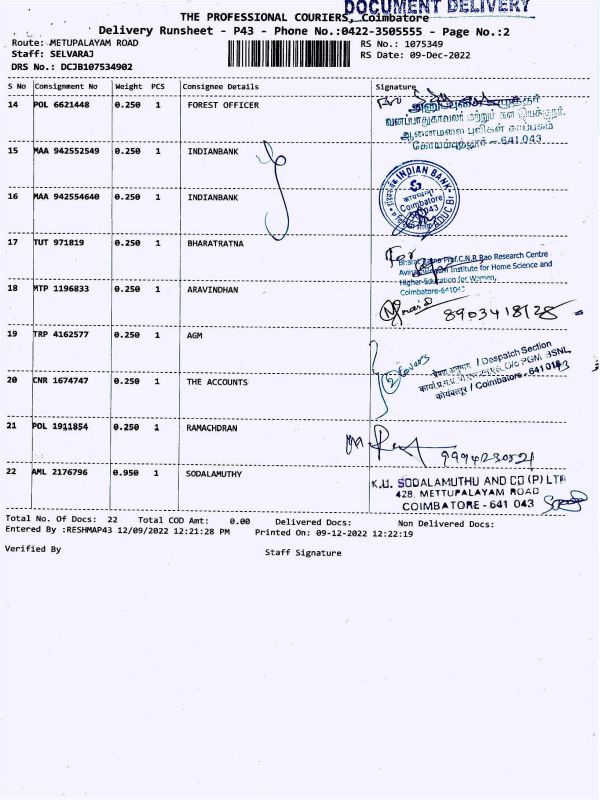 DOCUMENT DELIVERY
THE PROFESSIONAL COURIERS, Coimbatore
Delivery Runsheet - P43 - Phone No.:0422-3505555 - Page No.:2
Route: METUPALAYAM ROAD
RS No.: 1075349
Staff: SELVARAJ
RS Date: 09-Dec-2022
DRS No.: DCJB107534902
S No Consignment No Weight PCS Consignee Details Signature
14 POL 6621448 0.250 1 FOREST OFFICER
வனப்பாதுகாவலர் மற்றும் கள இயக்குநர்,
ஆனைமலை புலிகள் காப்பகம்
கோயம்புத்தூர் - 641 043
15 MAA 942552549 0.250 1 INDIANBANK
16 MAA 942554640 0.250 1 INDIANBANK
INDIAN BANK
Coimbatore
17 TUT 971819 0.250 1 BHARATRATNA
For
Prof.C.N.R.Rao Research Centre
Institute for Home Science and
Higher Education for Women,
Coimbatore-641043
18 MTP 1196833 0.250 1 ARAVINDHAN
8903418128
19 TRP 4162577 0.250 1 AGM
2 Covers
/ Despatch Section
O/o PGM BSNL,
कोयंबत्तूर / Coimbatore - 641 043
20 CNR 1674747 0.250 1 THE ACCOUNTS
21 POL 1911854 0.250 1 RAMACHDRAN
22 AML 2176796 0.950 1 SODALAMUTHY
K.U. SODALAMUTHU AND CO (P) LTD
428, METTUPALAYAM ROAD
COIMBATORE - 641 043
Total No. Of Docs: 22 Total COD Amt: 0.00 Delivered Docs: Non Delivered Docs:
Entered By :RESHMAP43 12/09/2022 12:21:28 PM Printed On: 09-12-2022 12:22:19
Verified By Staff Signature